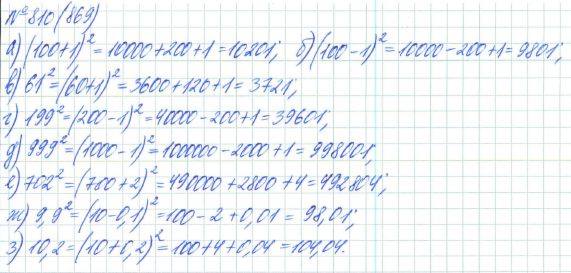 № 810 (869)
а) (100+1)² = 10000+200+1 = 10201; б) (100-1)² = 10000-200+1 = 9801;
в) 61² = (60+1)² = 3600+120+1 = 3721;
г) 199² = (200-1)² = 40000-200+1 = 39601;
д) 999² = (1000-1)² = 1000000-2000+1 = 998001;
е) 702² = (700+2)² = 490000+2800+4 = 492804;
ж) 9,9² = (10-0,1)² = 100-2+0,01 = 98,01;
з) 10,2 = (10+0,2)² = 100+4+0,04 = 104,04.